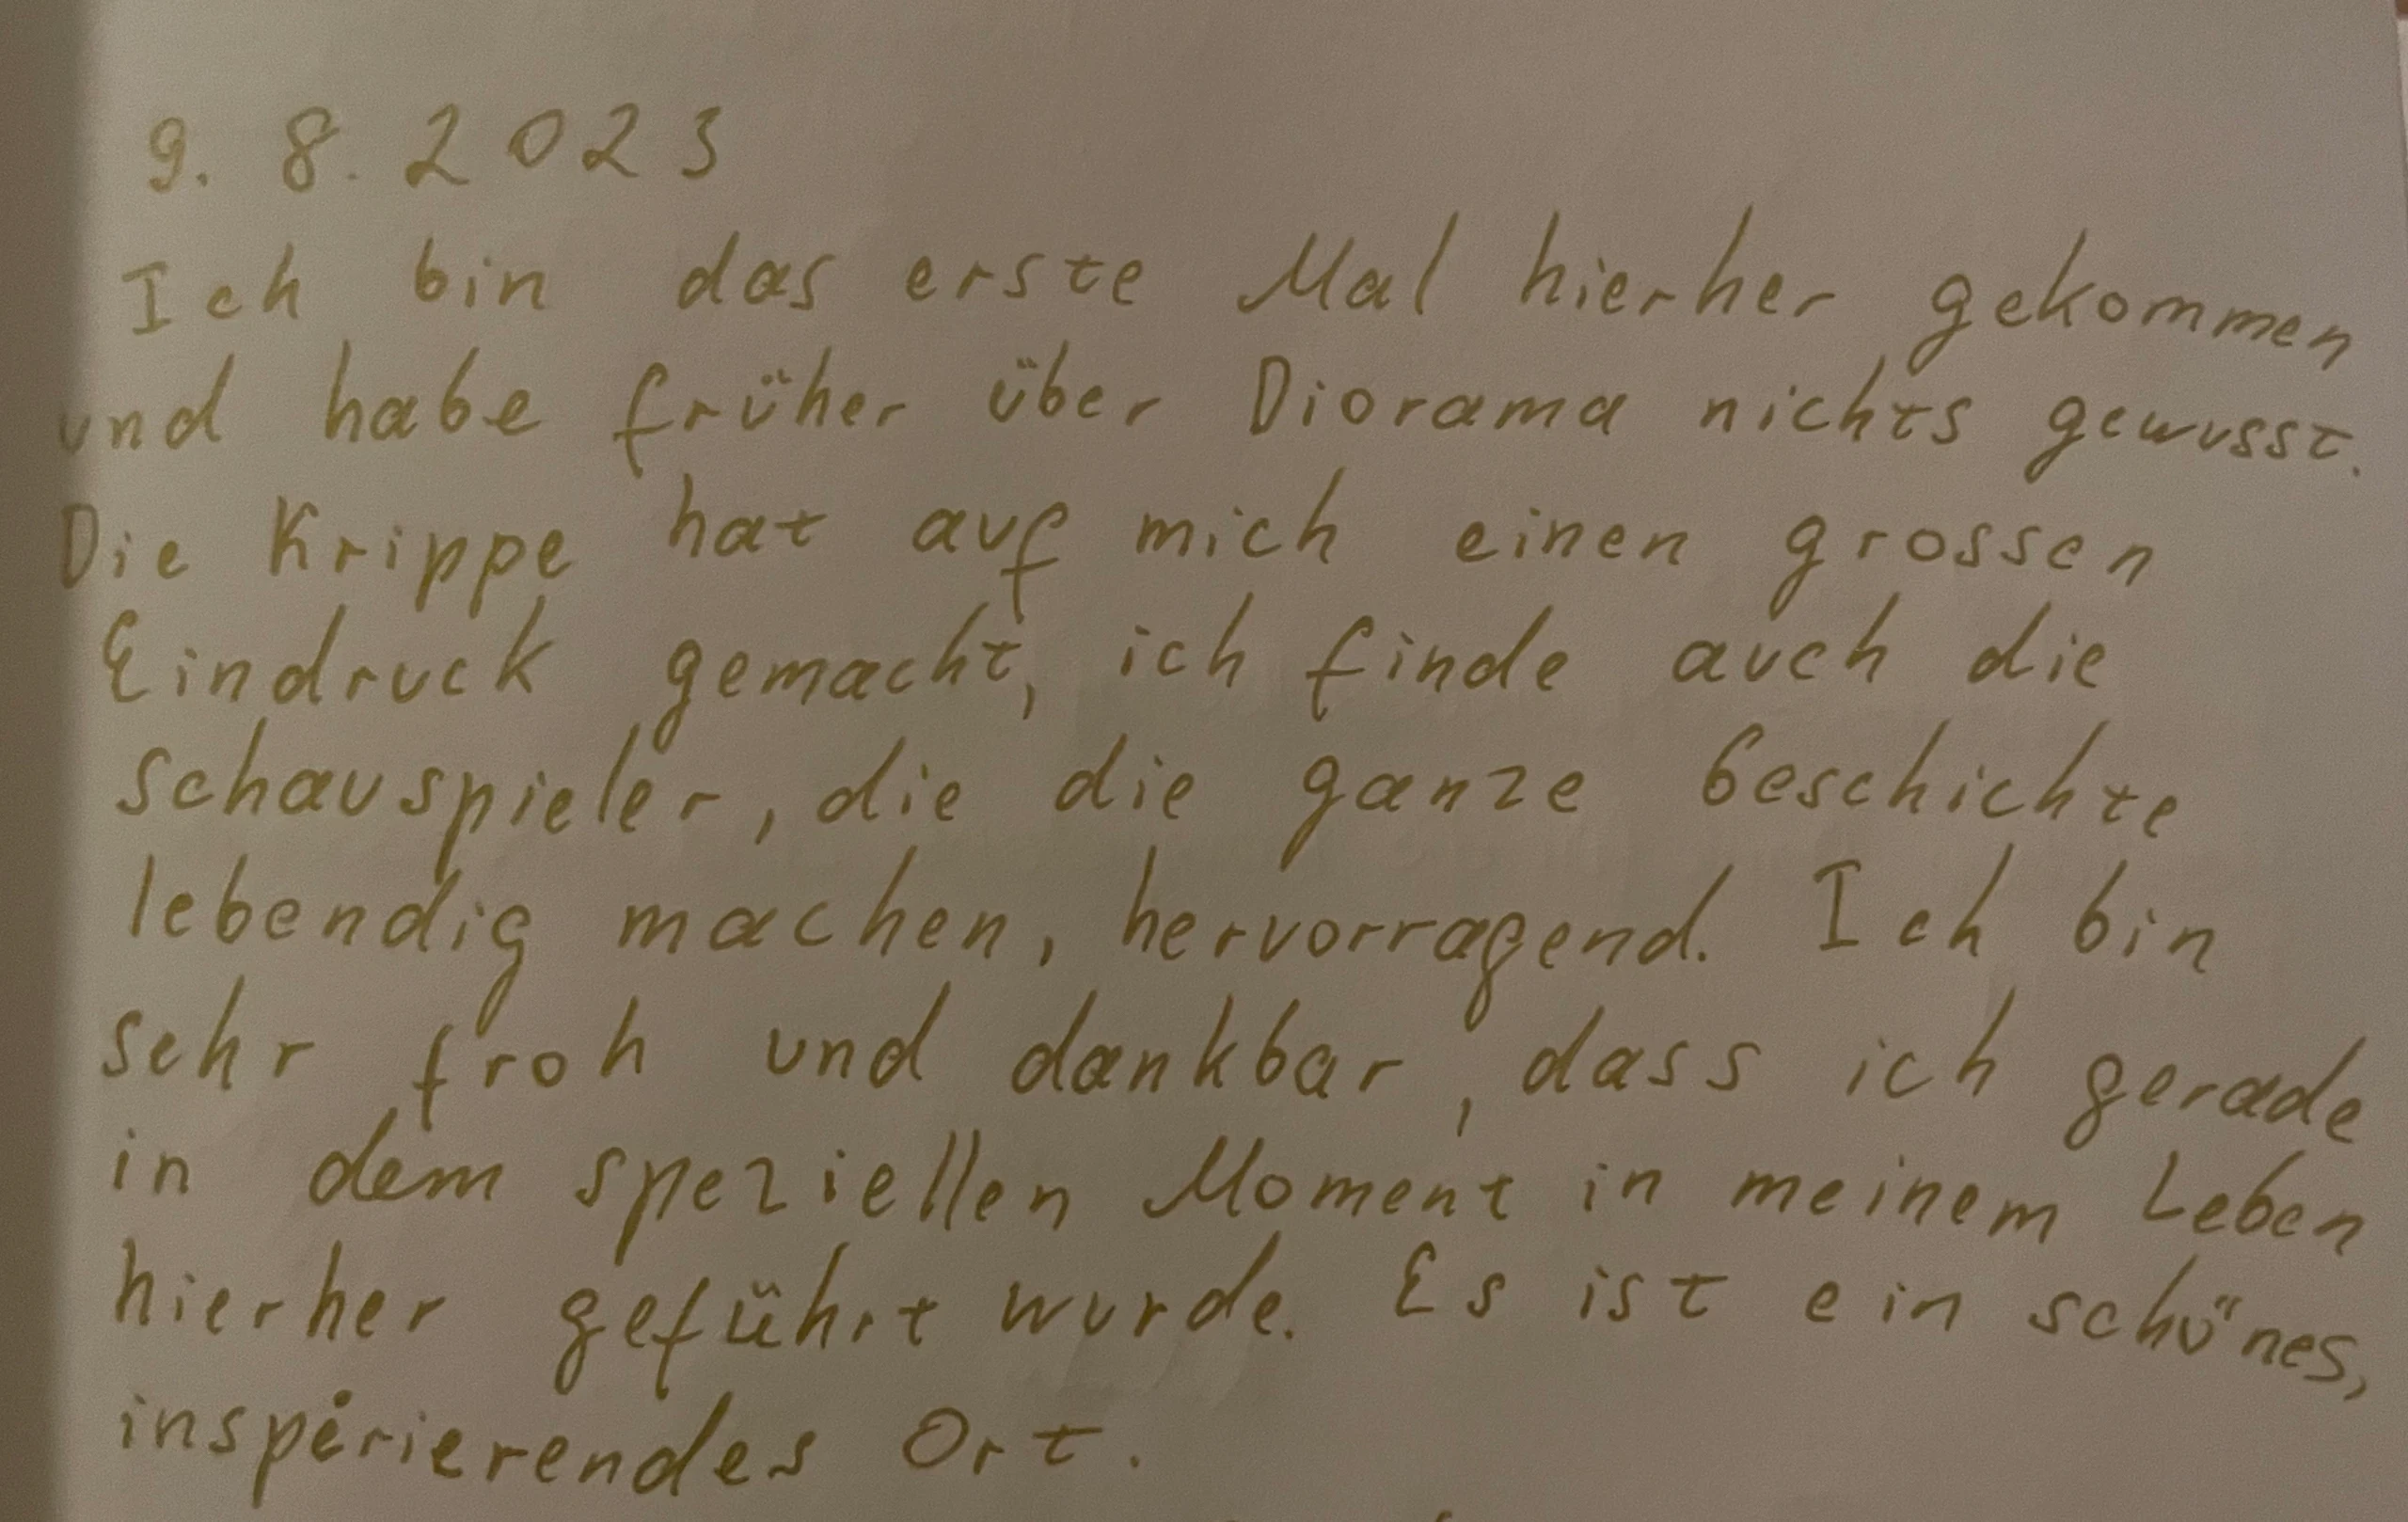 9. 8. 2023
Ich bin das erste Mal hierher gekommen
und habe früher über Diorama nichts gewusst.
Die Krippe hat auf mich einen grossen
Eindruck gemacht, ich finde auch die
Schauspieler, die die ganze Geschichte
lebendig machen, hervorragend. Ich bin
sehr froh und dankbar, dass ich gerade
in dem speziellen Moment in meinem Leben
hierher geführt wurde. Es ist ein schönes,
inspirierendes Ort.